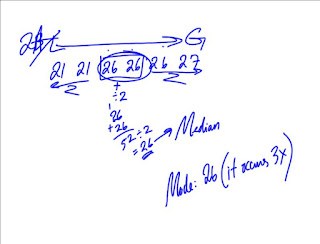 G
21 21 26 26 26 27
+
÷2
1
26
+26
52÷2
=26
Median
Mode: 26 (it occurs 3x)